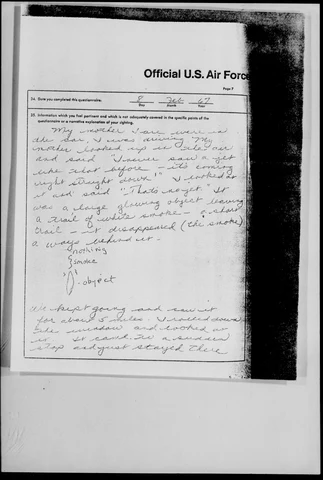 Official U.S. Air Force
Page 7
34. Date you completed this questionnaire:
8 Feb 67
Day Month Year
35. Information which you feel pertinent and which is not adequately covered in the specific points of the
questionnaire or a narrative explanation of your sighting.
My mother & I were in
the car, I was driving. My
mother looked up in the air
and said "I never saw a jet
like that before - it's coming
right straight down!" I looked at
it and said "That's no jet" It
was a large glowing object leaving
a trail of white smoke - a short
trail - it disappeared (the smoke)
a ways behind it.
nothing
smoke
- object
We kept going and saw it
for about 5 miles. I rolled down
the window and looked at
it. It came to a sudden
stop and just stayed there